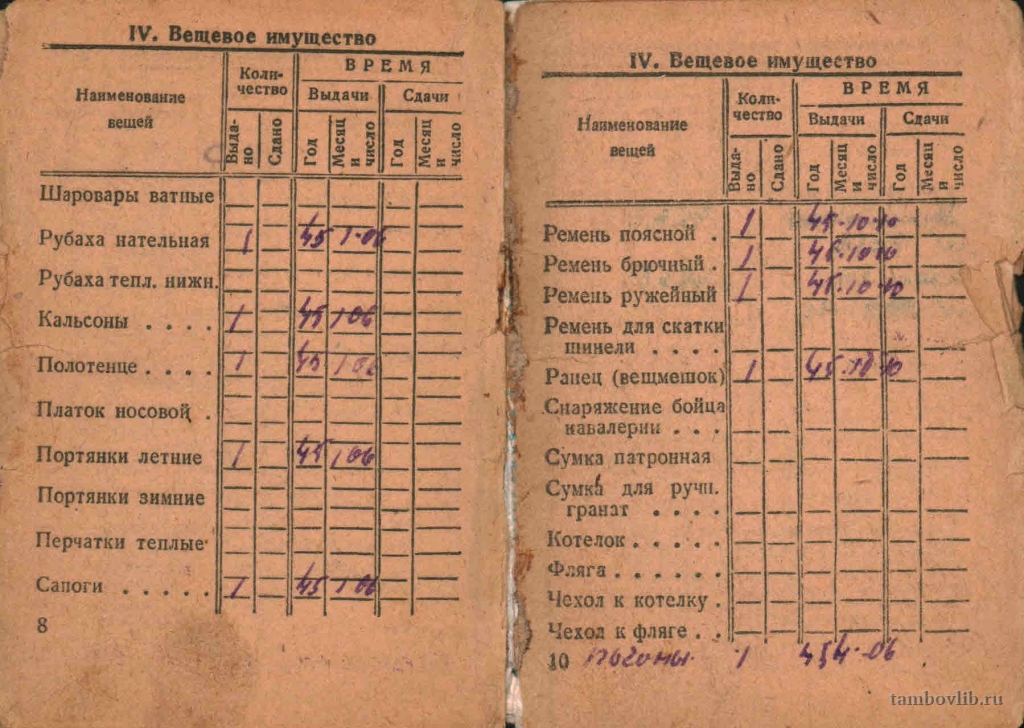 IV. Вещевое имущество
Наименование вещей
Коли-
чество
ВРЕМЯ
Выдачи
Сдачи
Выда-
но
Сдано
Год
Месяц
и
число
Год
Месяц
и
число
Шаровары ватные
Рубаха нательная 1 45 1-06
Рубаха тепл. нижн.
Кальсоны . . . . 1 45 1 06
Полотенце . . . . 1 45 1 06
Платок носовой .
Портянки летние 1 45 1 06
Портянки зимние
Перчатки теплые
Сапоги . . . . . 1 45 1 06
8
IV. Вещевое имущество
Наименование
вещей
Коли-
чество
ВРЕМЯ
Выдачи
Сдачи
Выда-
но
Сдано
Год
Месяц
и
число
Год
Месяц
и
число
Ремень поясной . 1 45-10-10
Ремень брючный . 1 45-10-10
Ремень ружейный 1 45-10-10
Ремень для скатки
шинели . . . .
Ранец (вещмешок) 1 45-10-10
Снаряжение бойца
кавалерии . . .
Сумка патронная
Сумка для ручн.
гранат . . . .
Котелок . . . . .
Фляга . . . . . .
Чехол к котелку .
Чехол к фляге . .
10 погоны 1 45 4-06
tambovlib.ru